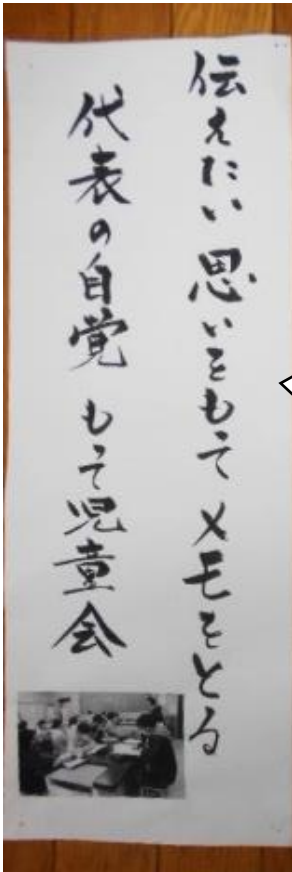 伝えたい 思いをもって メモをとる
代表の自覚 もって児童会